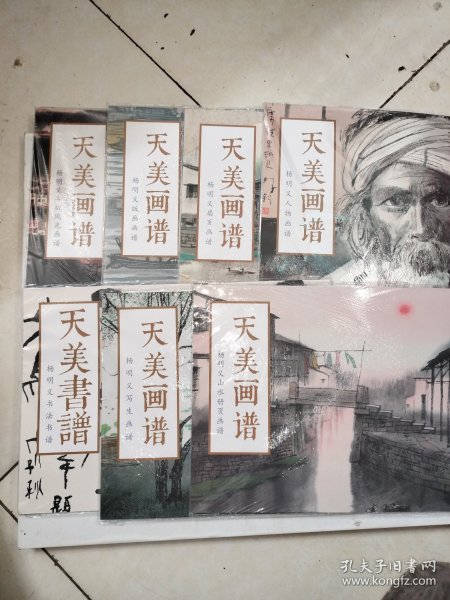 天美画谱
天美画谱
杨明义版画画谱
天美画谱
杨明义扇面画谱
天美画谱
杨明义人物画谱
天美書譜
杨明义书法书谱
天美画谱
杨明义写生画谱
天美画谱
杨明义山水册页画谱
孔夫子旧书网
www.kongfz.com